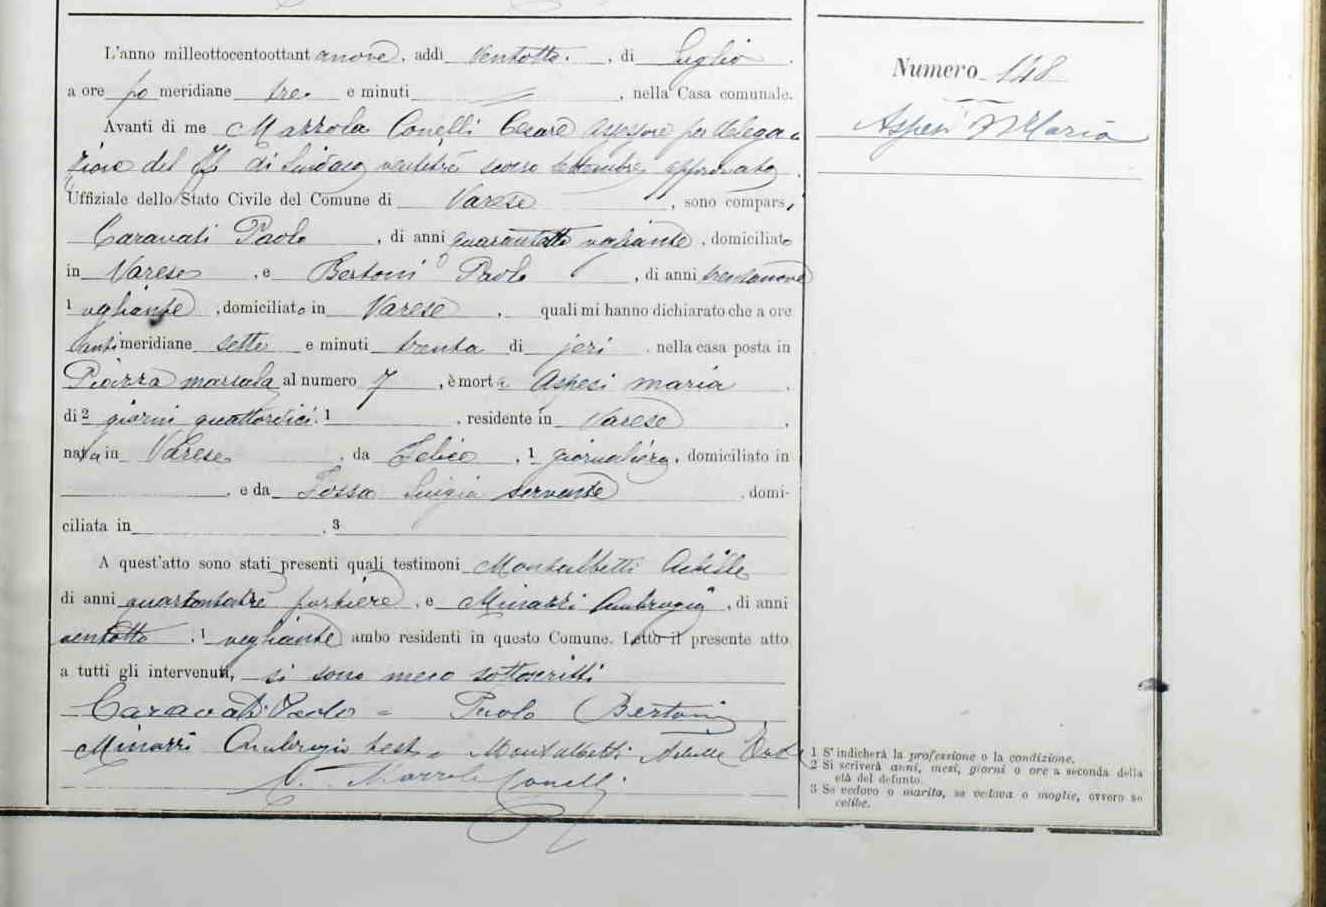 L'anno milleottocentoottantanove, addì ventotto, di Luglio,
a ore po meridiane tre e minuti =, nella Casa comunale.
Avanti di me Mazzola Conelli Cesare Assessore per delega
zione del ff di Sindaco ventitré scorso Settembre approvata,
Uffiziale dello Stato Civile del Comune di Varese, sono comparsi
Caravati Paolo, di anni vegliante, domiciliato
in Varese, e Bertoni Paolo, di anni trentanove
1 vegliante, domiciliato in Varese, quali mi hanno dichiarato che a ore
antimeridiane sette e minuti trenta di jeri, nella casa posta in
Piazza marsala al numero 7, è morta Aspesi maria
di 2 giorni quattordici, 1, residente in Varese,
nata in Varese, da Felice, 1 giornaliero, domiciliato in
, e da Fossa Luigia servente, domi-
ciliata in, 3
A quest'atto sono stati presenti quali testimoni Montalbetti Achille
di anni quarantatre portiere, e Minazzi Ambrogio, di anni
ventotto, 1 vegliante ambo residenti in questo Comune. Letto il presente atto
a tutti gli intervenuti, si sono meco sottoscritti
Caravati Paolo = Paolo Bertoni
Minazzi Ambrogio test = Montalbetti Achille
C. Mazzola Conelli
Numero 148
Aspesi Maria
1 S'indicherà la professione o la condizione.
2 Si scriverà anni, mesi, giorni o ore a seconda della
età del defunto.
3 Se vedovo o marito, se vedova o moglie, ovvero se
celibe.